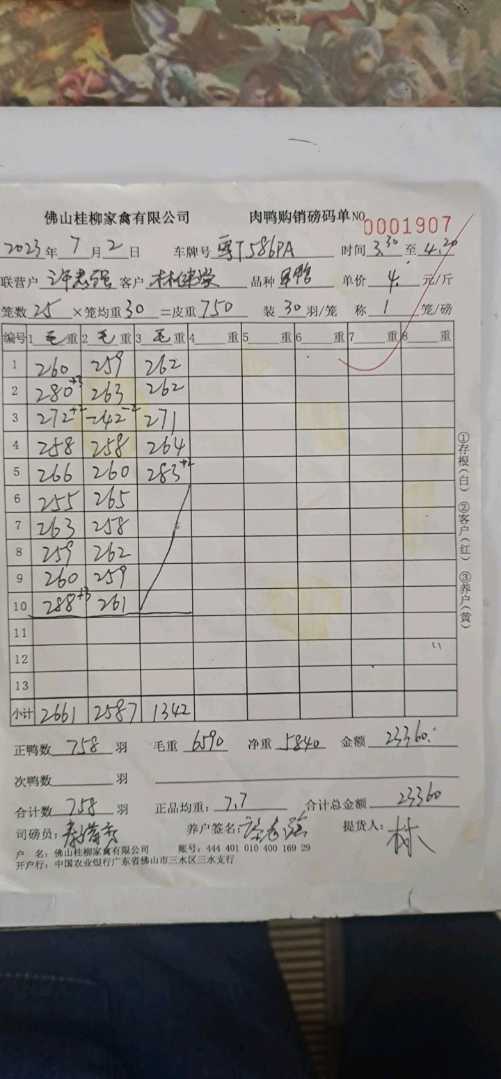 佛山桂柳家禽有限公司 肉鸭购销磅码单 NO 0001907
2023年 7 月 2 日 车牌号 粤T586PA 时间 3.30 至 4.20
联营户 客户 品种 单价 4. 元/斤
笼数 25 ×笼均重 30 =皮重 750 装 30 羽/笼 称 1 笼/磅
编号 1 毛 重 2 毛 重 3 毛 重 4 重 5 重 6 重 7 重 8 重
1 260 259 262
2 280+3 263 262
3 272+2 242-2 271
4 258 258 264
5 266 260 283+2
6 255 265
7 263 258
8 259 262
9 260 259
10 288+3 261
11
12
13
小计 2661 2587 1342
正鸭数 758 羽 毛重 6590 净重 5840 金额 23360.
次鸭数 羽
合计数 758 羽 正品均重: 7.7 合计总金额 23360
司磅员: 养户签名: 提货人: 林
户 名: 佛山桂柳家禽有限公司 账号: 444 401 010 400 169 29
开户行: 中国农业银行广东省佛山市三水区三水支行
①存根(白) ②客户(红) ③养户(黄)